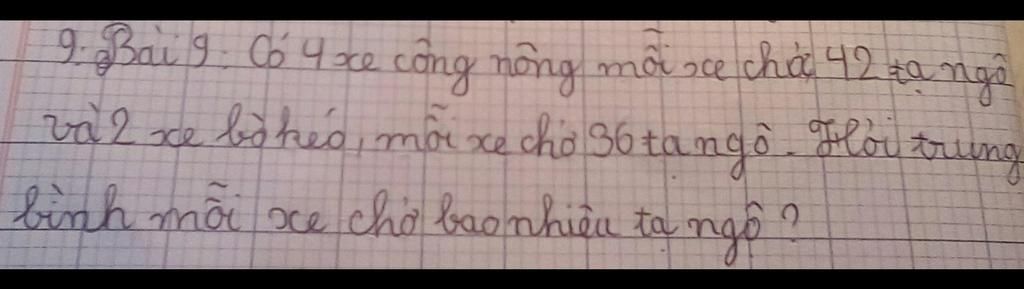 9. Bài 9. Có 4 xe công nông mỗi xe chở 42 tạ ngô
và 2 xe bò kéo, mỗi xe chở 36 tạ ngô. Hỏi trung
bình mỗi xe chở bao nhiêu tạ ngô?